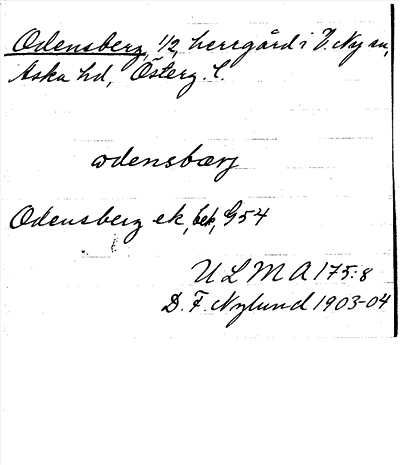 Odensberg, 1/2, herrgård i V. Ny sn,
Aska hd, Österg. l.
odensbærj
Odensberg ek, bek, G54
U L M A 175:8
D. F. Nylund 1903-04